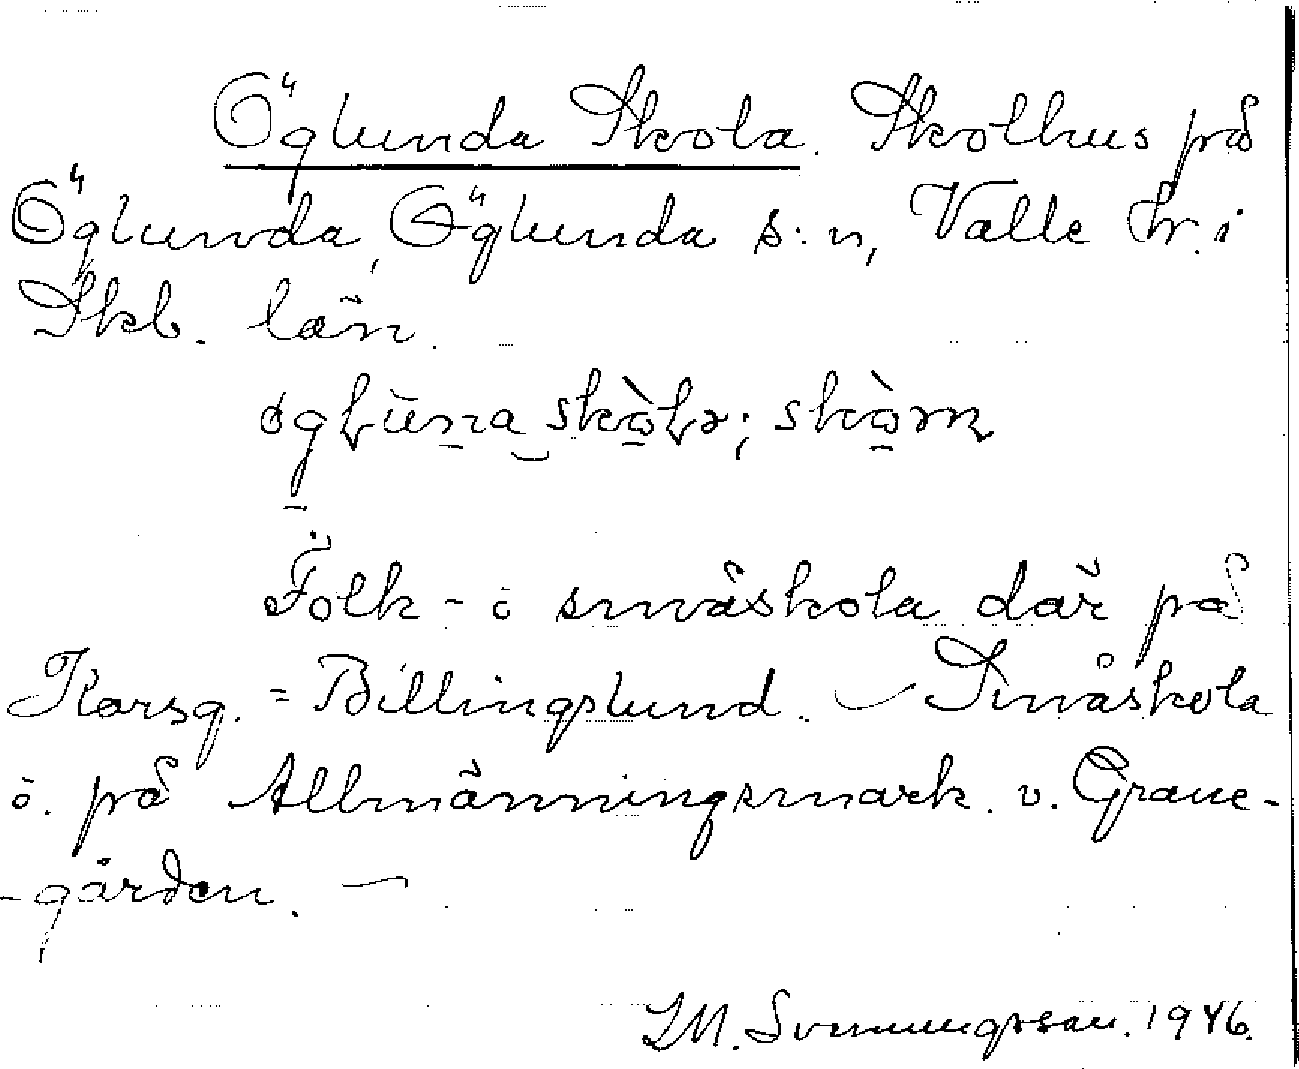 Öglunda Skola. Skolhus på
Öglunda, Öglunda s:n, Valle hr. i
Skb. län.
Folk- o småskola där på
Korsg. = Billingslund. – Småskola
o. på Allmänningsmark. v. Grane-
-gården. –
LM. Svenungsson. 1946.